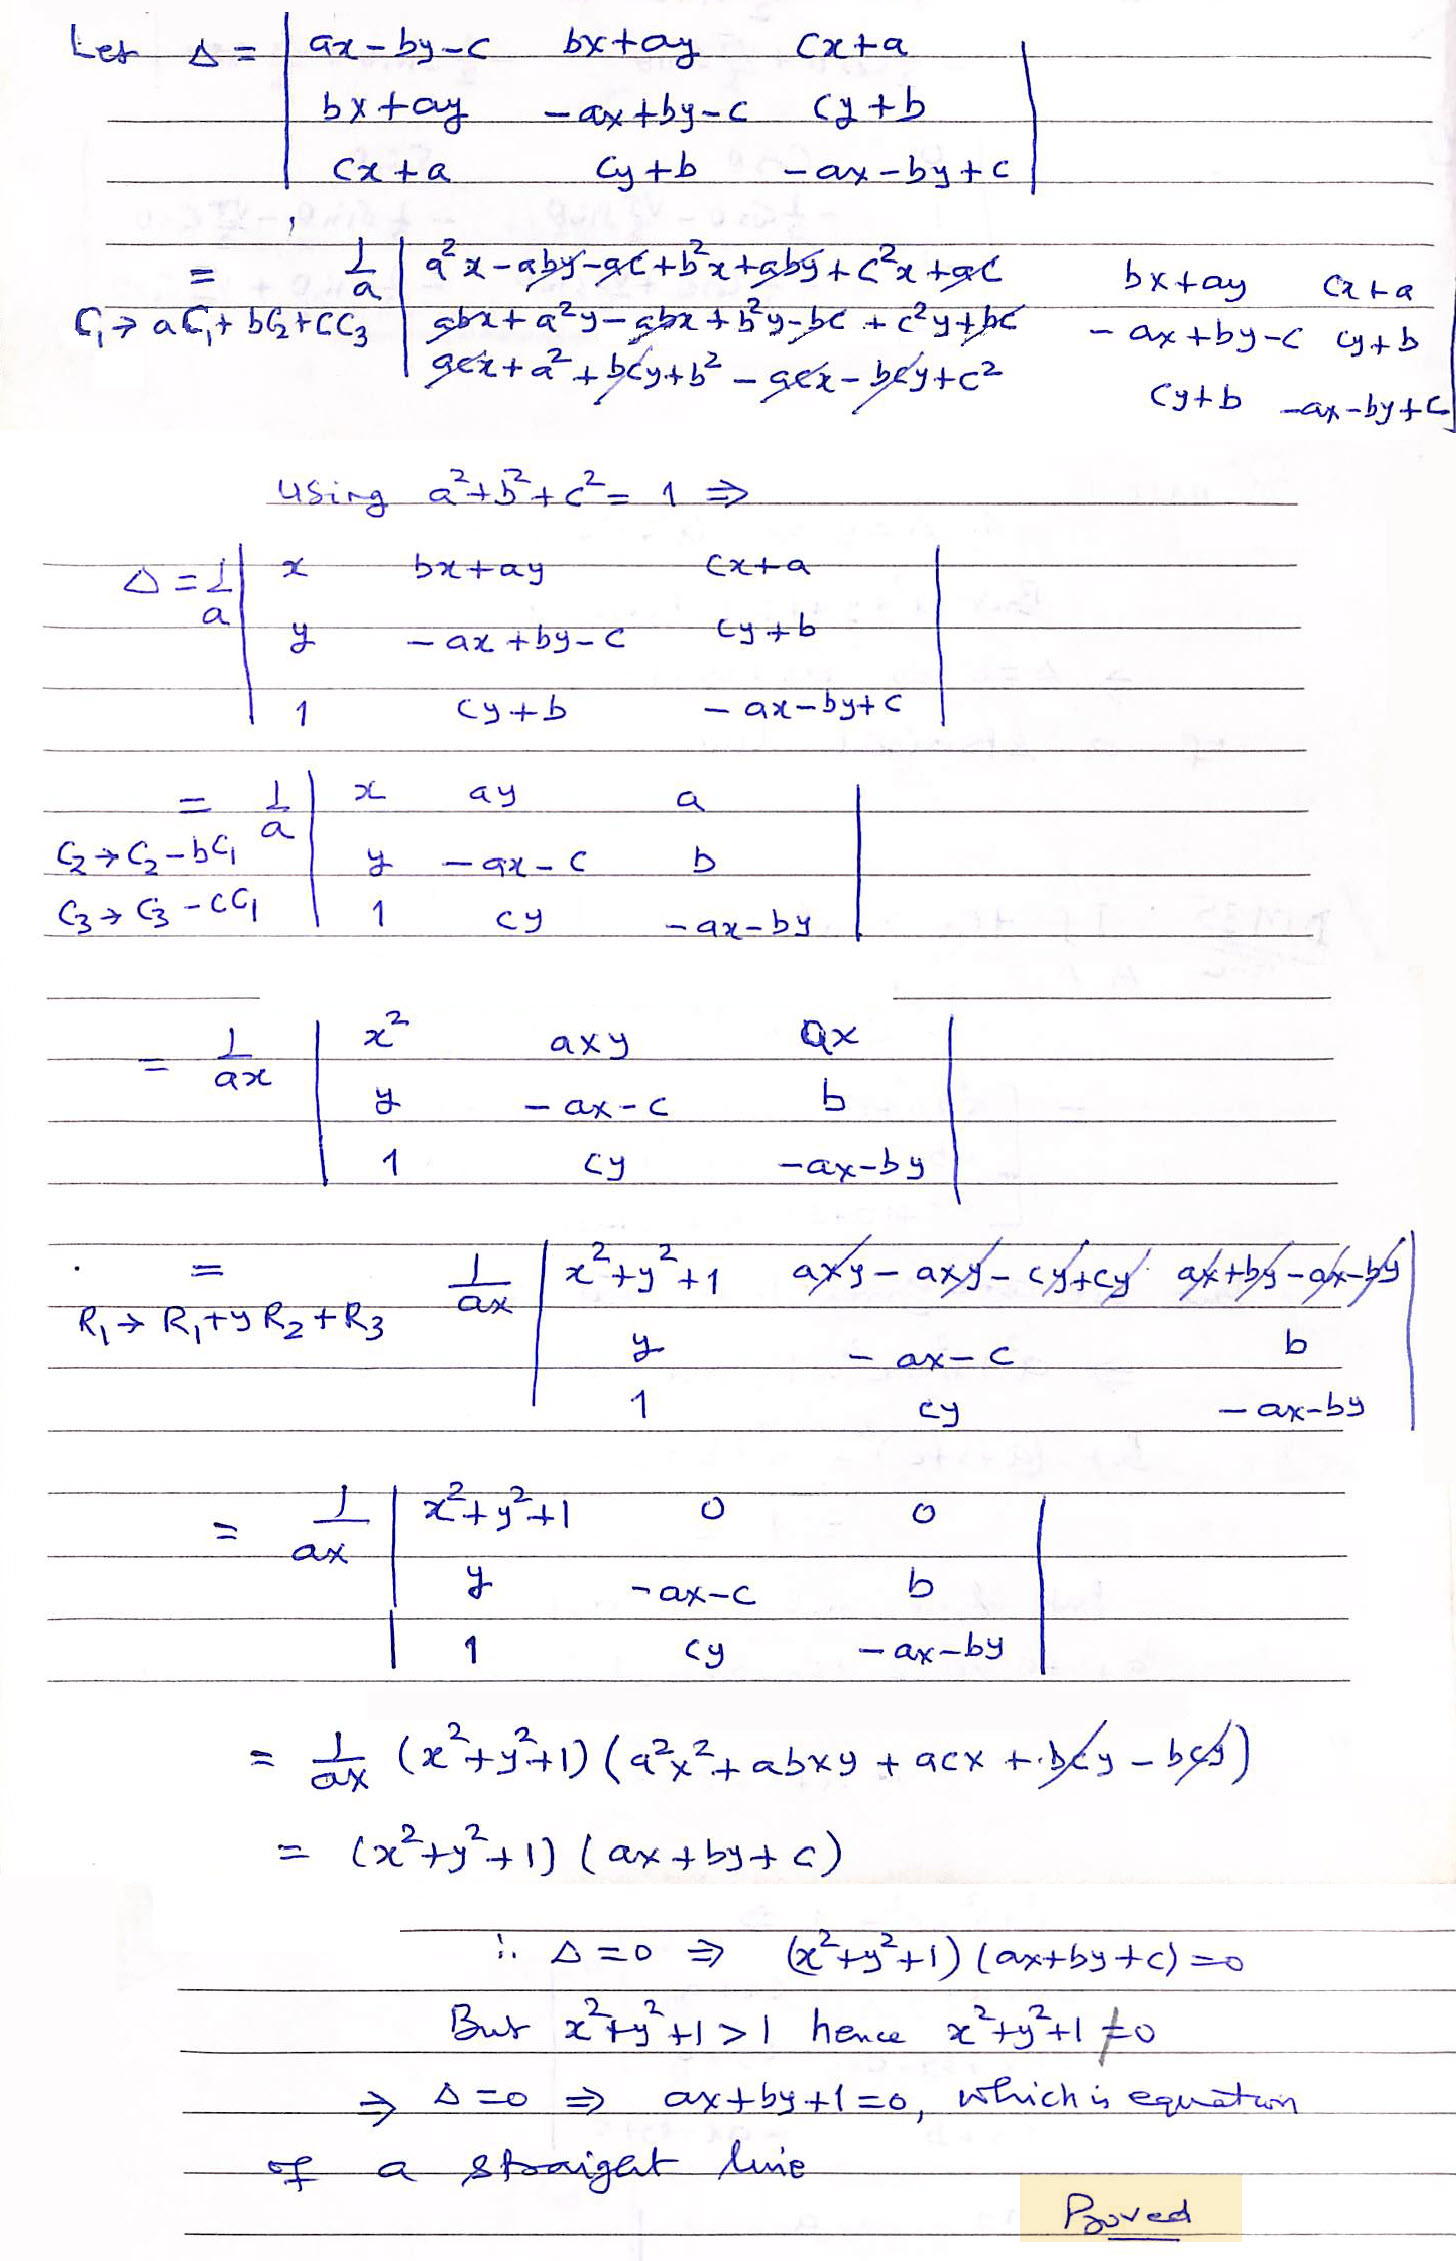 Let Δ = | ax-by-c   bx+ay   cx+a |
| bx+ay   -ax+by-c   cy+b |
| cx+a   cy+b   -ax-by+c |
= 1/a | a²x-aby-ac+b²x+aby+c²x+ac   bx+ay   cx+a |
C₁→ aC₁+bC₂+cC₃ | abx+a²y-abx+b²y-bc+c²y+bc   -ax+by-c   cy+b |
| acx+a²+bcy+b²-acx-bcy+c²   cy+b   -ax-by+c |
using a²+b²+c² = 1 ⇒
Δ = 1/a | x   bx+ay   cx+a |
| y   -ax+by-c   cy+b |
| 1   cy+b   -ax-by+c |
= 1/a | x   ay   a |
C₂→C₂-bC₁ | y   -ax-c   b |
C₃→C₃-cC₁ | 1   cy   -ax-by |
= 1/ax | x²   axy   ax |
| y   -ax-c   b |
| 1   cy   -ax-by |
= 1/ax | x²+y²+1   axy-axy-cy+cy   ax+by-ax-by |
R₁→ R₁+yR₂+R₃ | y   -ax-c   b |
| 1   cy   -ax-by |
= 1/ax | x²+y²+1   0   0 |
| y   -ax-c   b |
| 1   cy   -ax-by |
= 1/ax (x²+y²+1)(a²x²+abxy+acx+bcy-bcy)
= (x²+y²+1)(ax+by+c)
∴ Δ=0 ⇒ (x²+y²+1)(ax+by+c)=0
But x²+y²+1>1 hence x²+y²+1≠0
⇒ Δ=0 ⇒ ax+by+1=0, which is equation
of a straight line
Proved